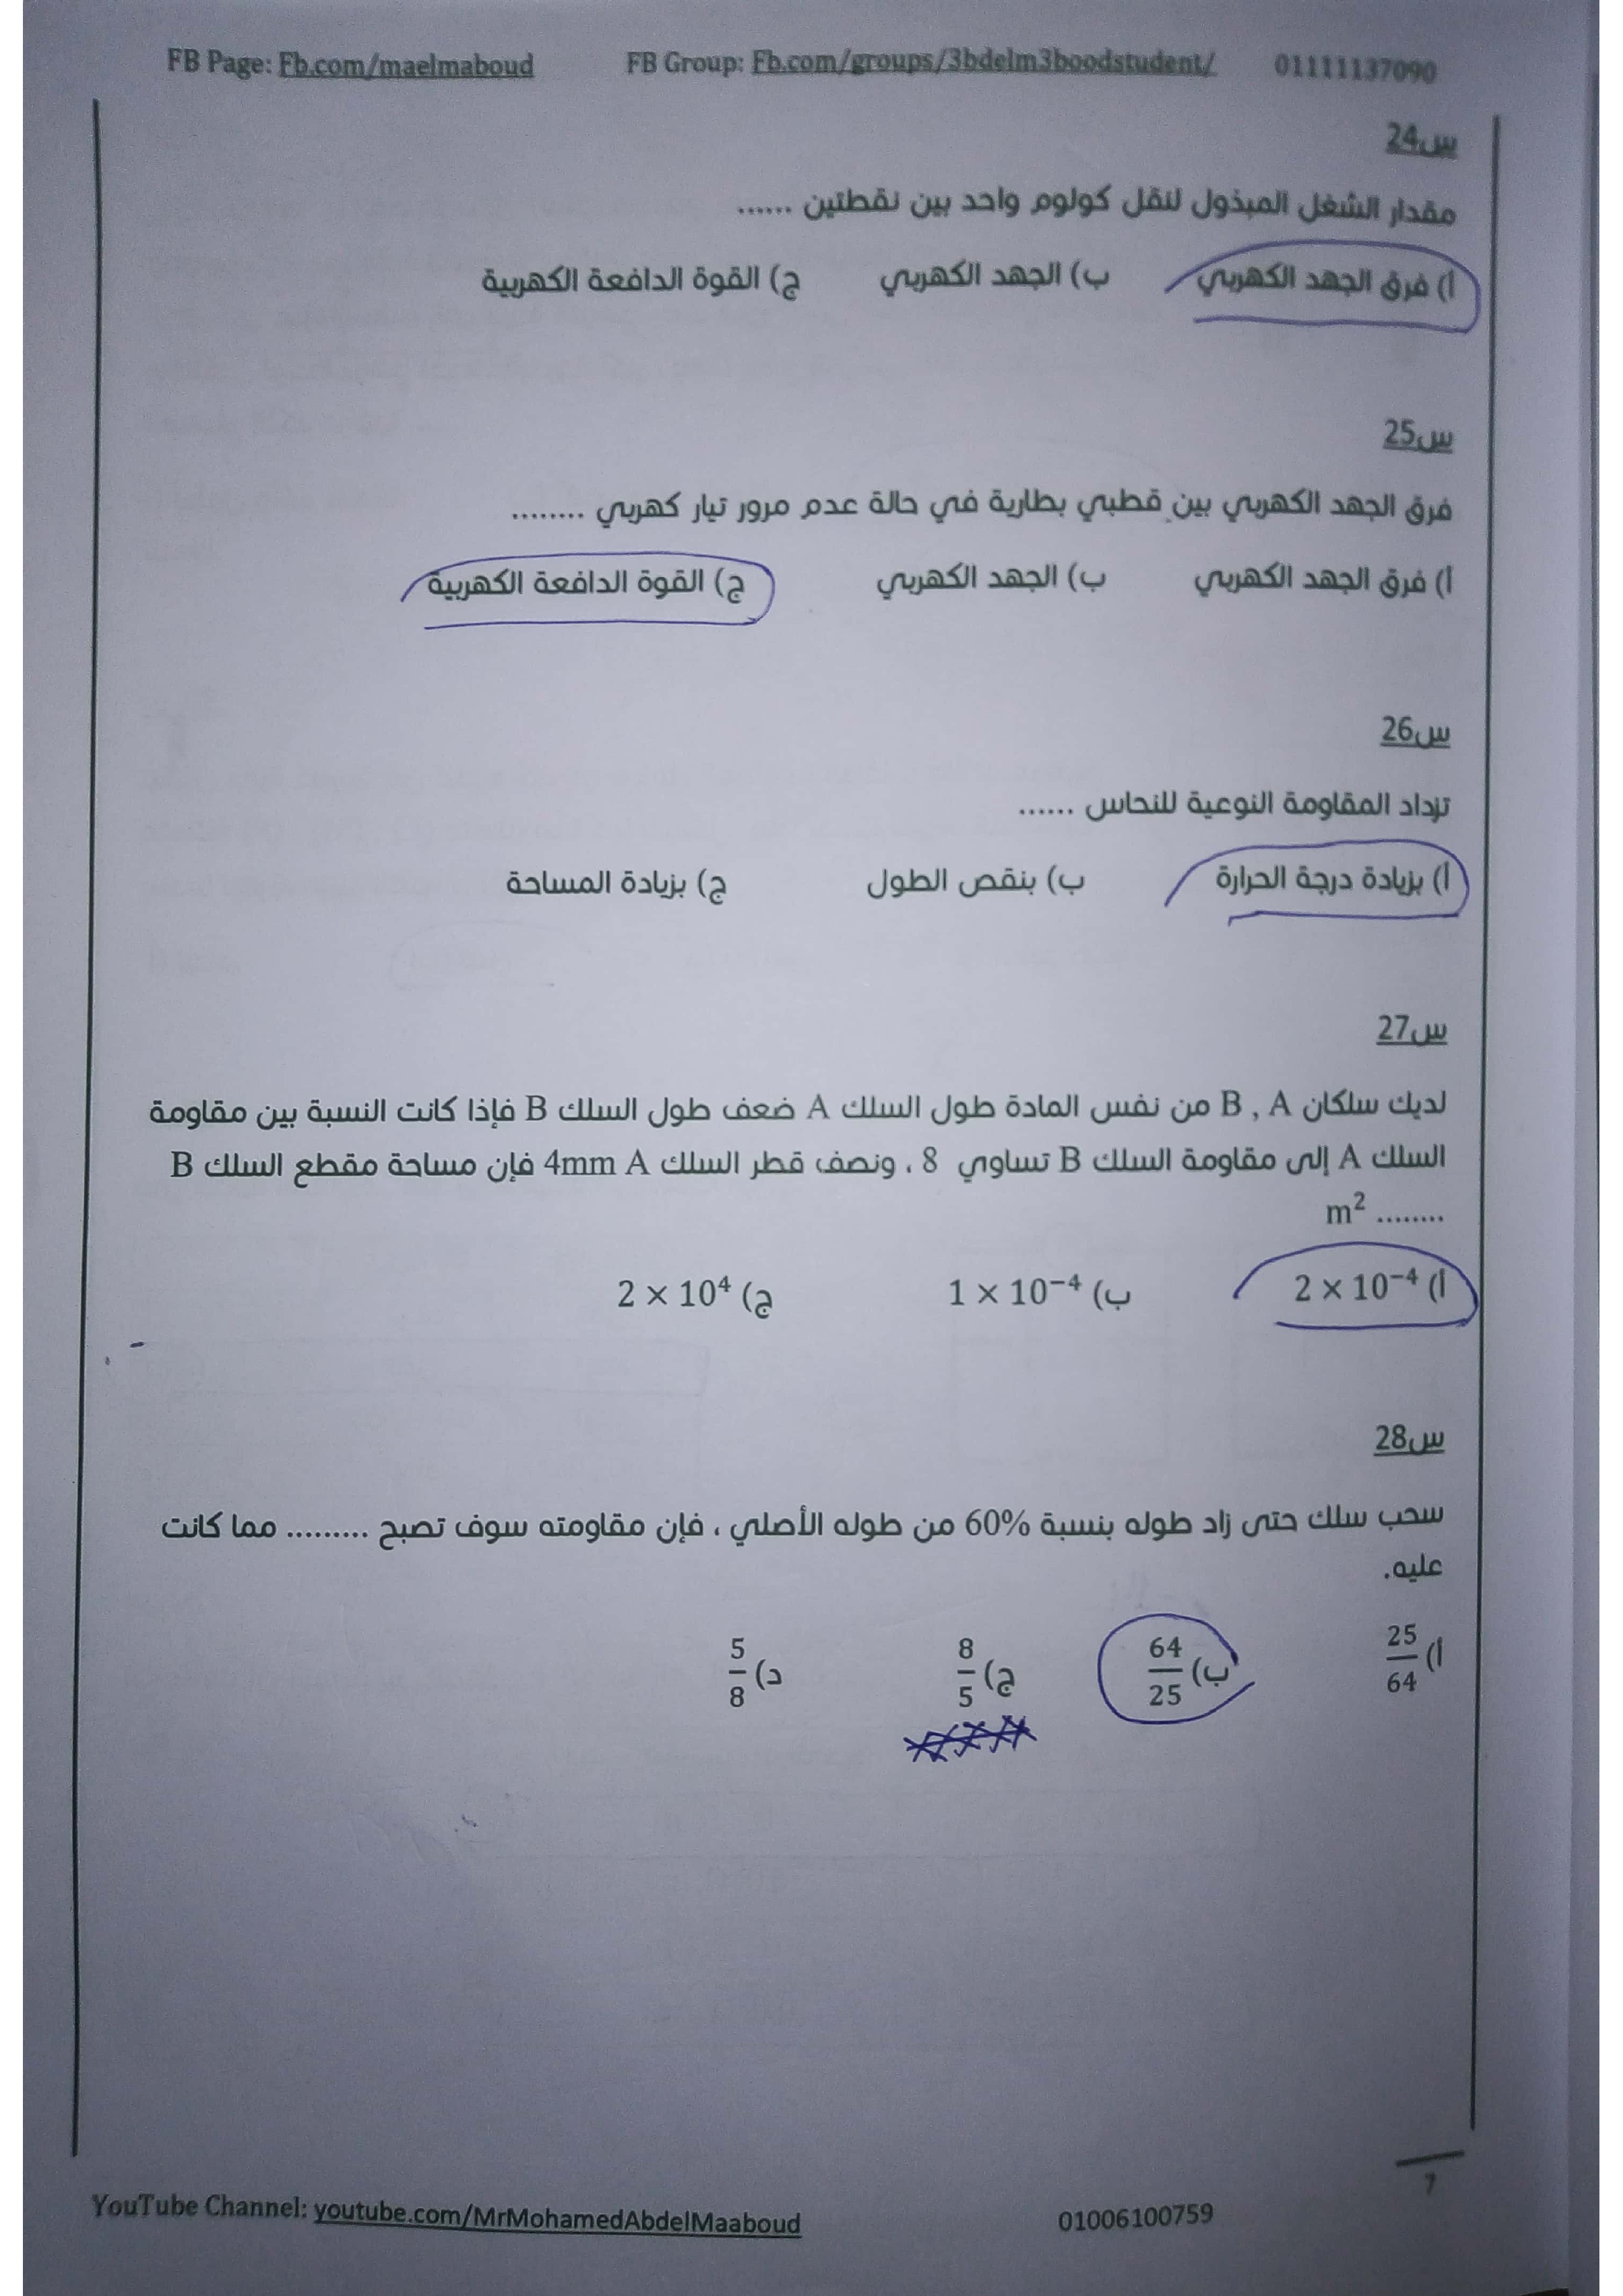 FB Page: Fb.com/maelmaboud FB Group: Fb.com/groups/3bdelm3boodstudent/ 01111137090
س24
مقدار الشغل المبذول لنقل كولوم واحد بين نقطتين ......
أ) فرق الجهد الكهربي ب) الجهد الكهربي ج) القوة الدافعة الكهربية
س25
فرق الجهد الكهربي بين قطبي بطارية في حالة عدم مرور تيار كهربي ........
أ) فرق الجهد الكهربي ب) الجهد الكهربي ج) القوة الدافعة الكهربية
س26
تزداد المقاومة النوعية للنحاس ......
أ) بزيادة درجة الحرارة ب) بنقص الطول ج) بزيادة المساحة
س27
لديك سلكان B , A من نفس المادة طول السلك A ضعف طول السلك B فإذا كانت النسبة بين مقاومة
السلك A إلى مقاومة السلك B تساوي 8 ، ونصف قطر السلك 4mm A فإن مساحة مقطع السلك B
........ m²
أ) 2 × 10⁻⁴ ب) 1 × 10⁻⁴ ج) 2 × 10⁴
س28
سحب سلك حتى زاد طوله بنسبة 60% من طوله الأصلي ، فإن مقاومته سوف تصبح ......... مما كانت
عليه.
أ) 25/64 ب) 64/25 ج) 8/5 د) 5/8
7
YouTube Channel: youtube.com/MrMohamedAbdelMaaboud 01006100759